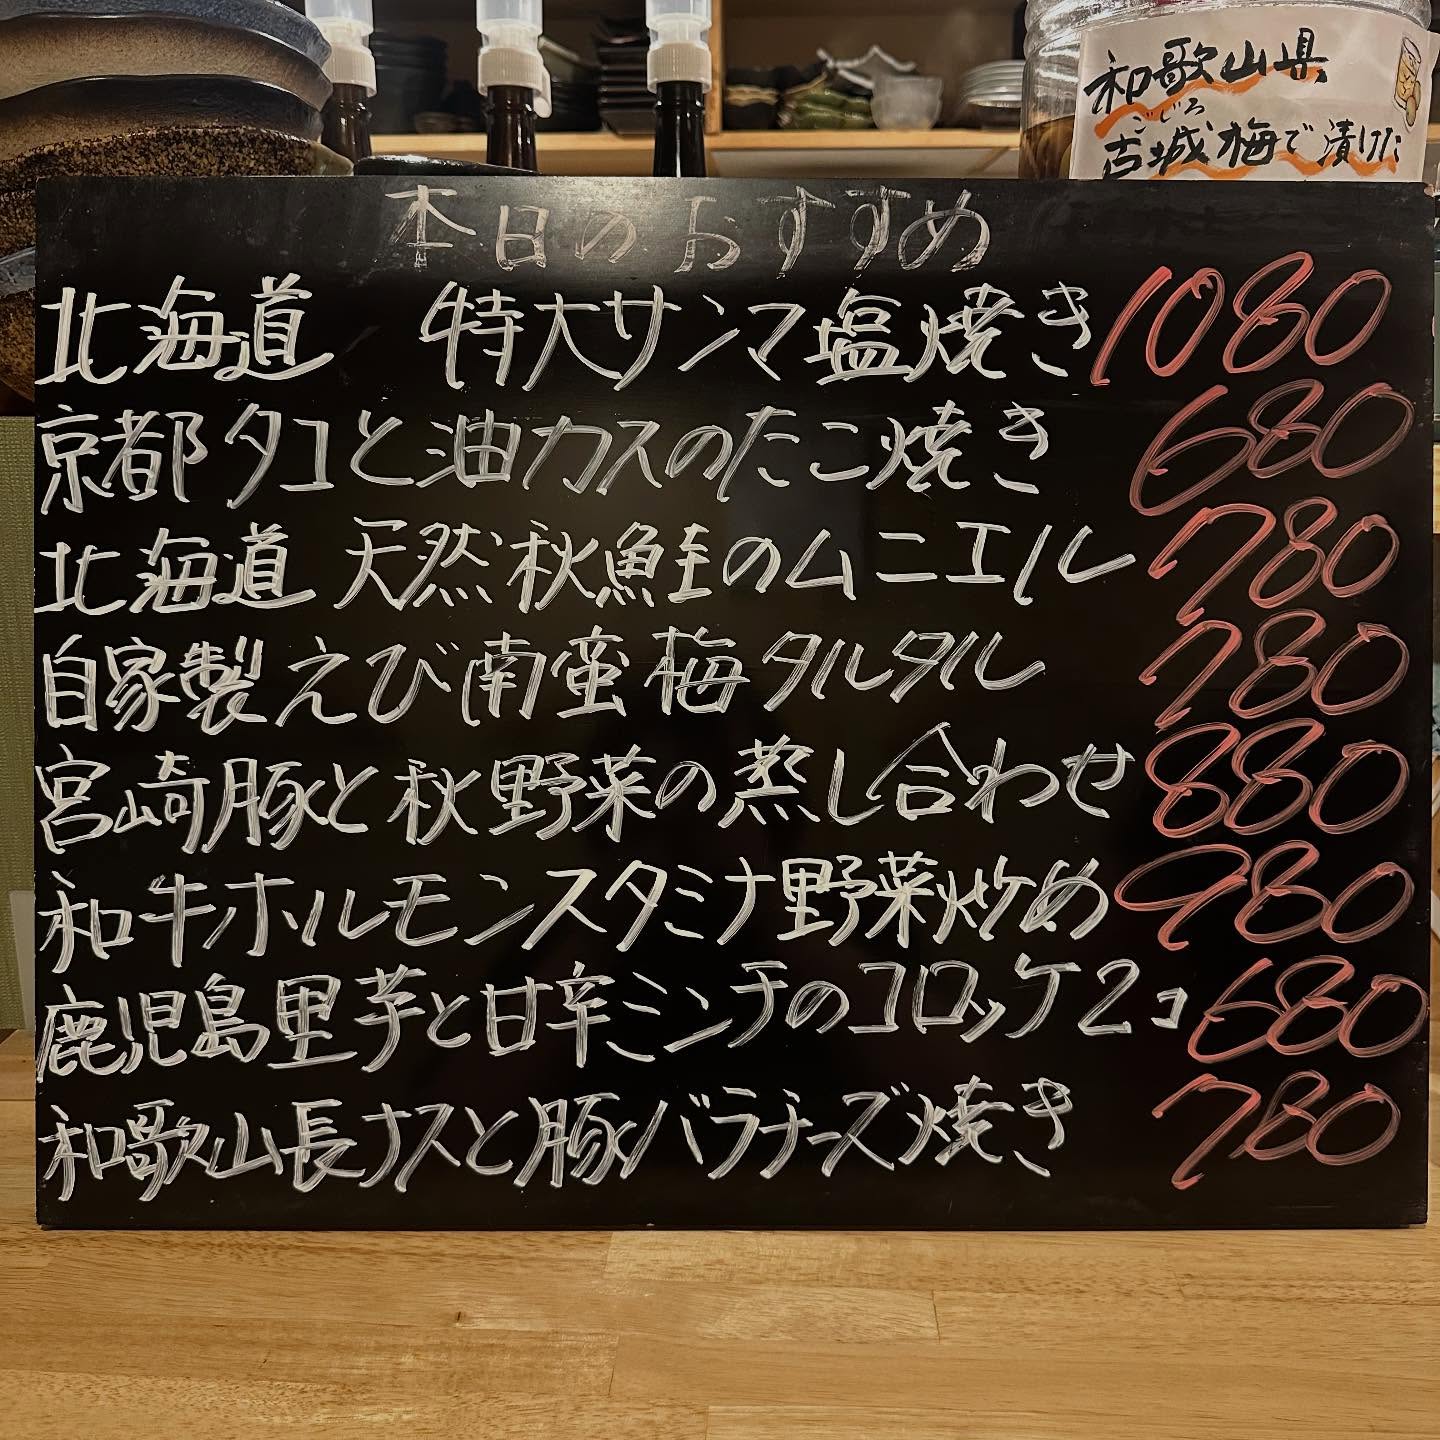 和歌山県
ごじろ
古城梅で漬けた
本日のおすすめ
北海道 特大サンマ塩焼き 1080
京都タコと油カスのたこ焼き 680
北海道 天然秋鮭のムニエル 780
自家製えび南蛮梅タルタル 780
宮崎豚と秋野菜の蒸し合わせ 880
和牛ホルモンスタミナ野菜炒め 980
鹿児島里芋と甘辛ミンチのコロッケ2コ 680
和歌山長ナスと豚バラチーズ焼き 780